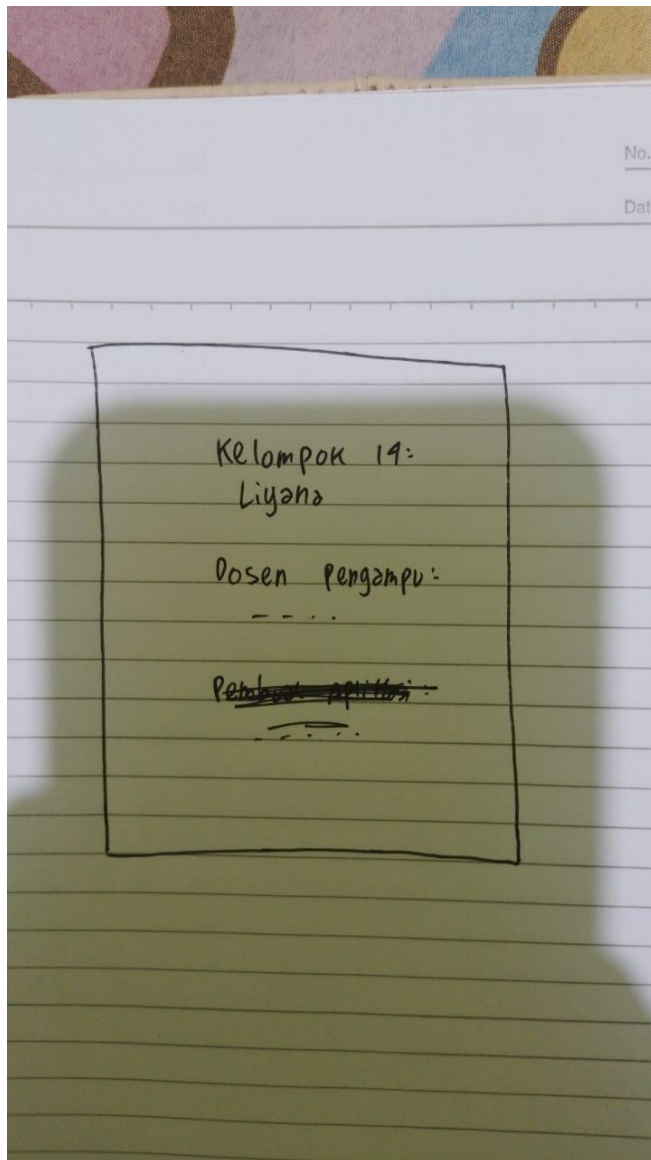 No.
Dat
Kelompok 14:
Liyana
Dosen Pengampu:
- - . .